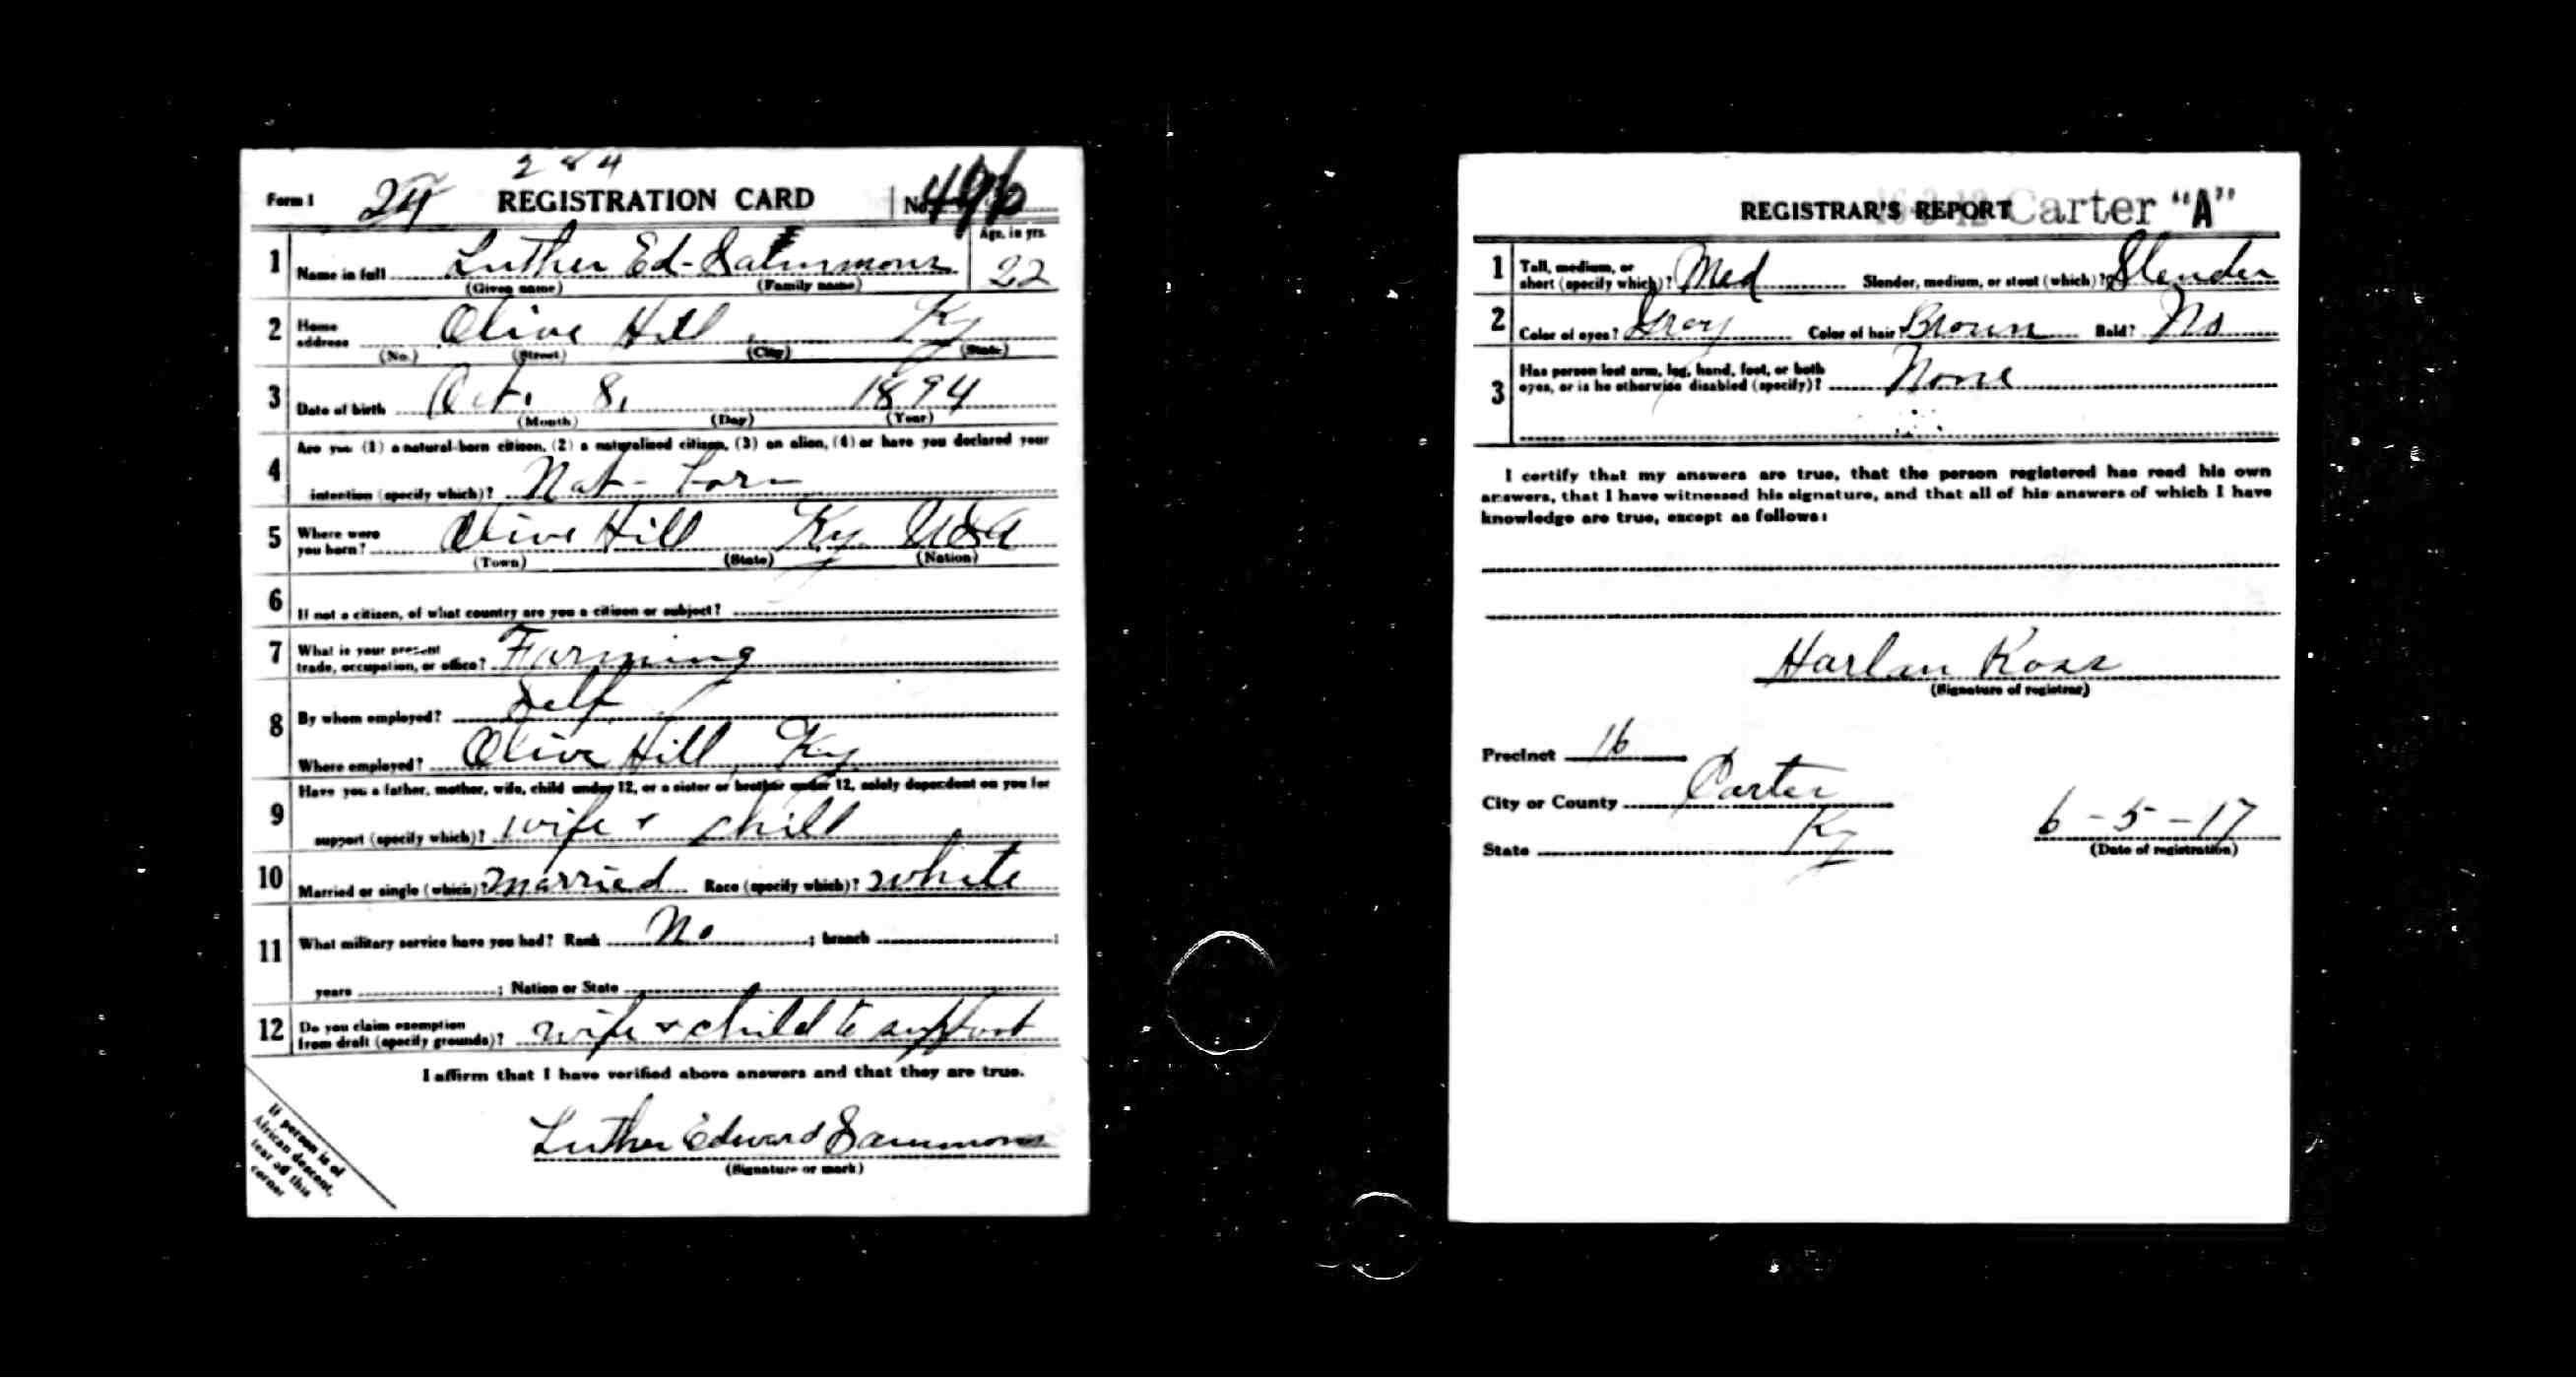 2 8 4
Form 1 REGISTRATION CARD No. 496
1 Name in full Luther Ed- Sammons Age, in yrs. 22
(Given name) (Family name)
2 Home address Olive Hill, Ky
(No.) (Street) (City) (State)
3 Date of birth Oct. 8, 1894
(Month) (Day) (Year)
4 Are you (1) a natural-born citizen, (2) a naturalized citizen, (3) an alien, (4) or have you declared your
intention (specify which)? Nat- born
5 Where were you born? Olive Hill Ky. USA
(Town) (State) (Nation)
6 If not a citizen, of what country are you a citizen or subject?
7 What is your present trade, occupation, or office? Farming
8 By whom employed? Self
Where employed? Olive Hill, Ky
9 Have you a father, mother, wife, child under 12, or a sister or brother under 12, solely dependent on you for
support (specify which)? wife + child
10 Married or single (which)? Married Race (specify which)? White
11 What military service have you had? Rank No ; branch ;
years ; Nation or State
12 Do you claim exemption from draft (specify grounds)? wife + child to support
I affirm that I have verified above answers and that they are true.
Luther Edward Sammons
(Signature or mark)
If person is of
African descent,
tear off this
corner
REGISTRAR'S REPORT Carter "A"
1 Tall, medium, or short (specify which)? Med Slender, medium, or stout (which)? Slender
2 Color of eyes? Gray Color of hair? Brown Bald? No
3 Has person lost arm, leg, hand, foot, or both eyes, or is he otherwise disabled (specify)? None
I certify that my answers are true, that the person registered has read his own
answers, that I have witnessed his signature, and that all of his answers of which I have
knowledge are true, except as follows:
Harlan Ross
(Signature of registrar)
Precinct 16
City or County Carter
State Ky
6-5-17
(Date of registration)